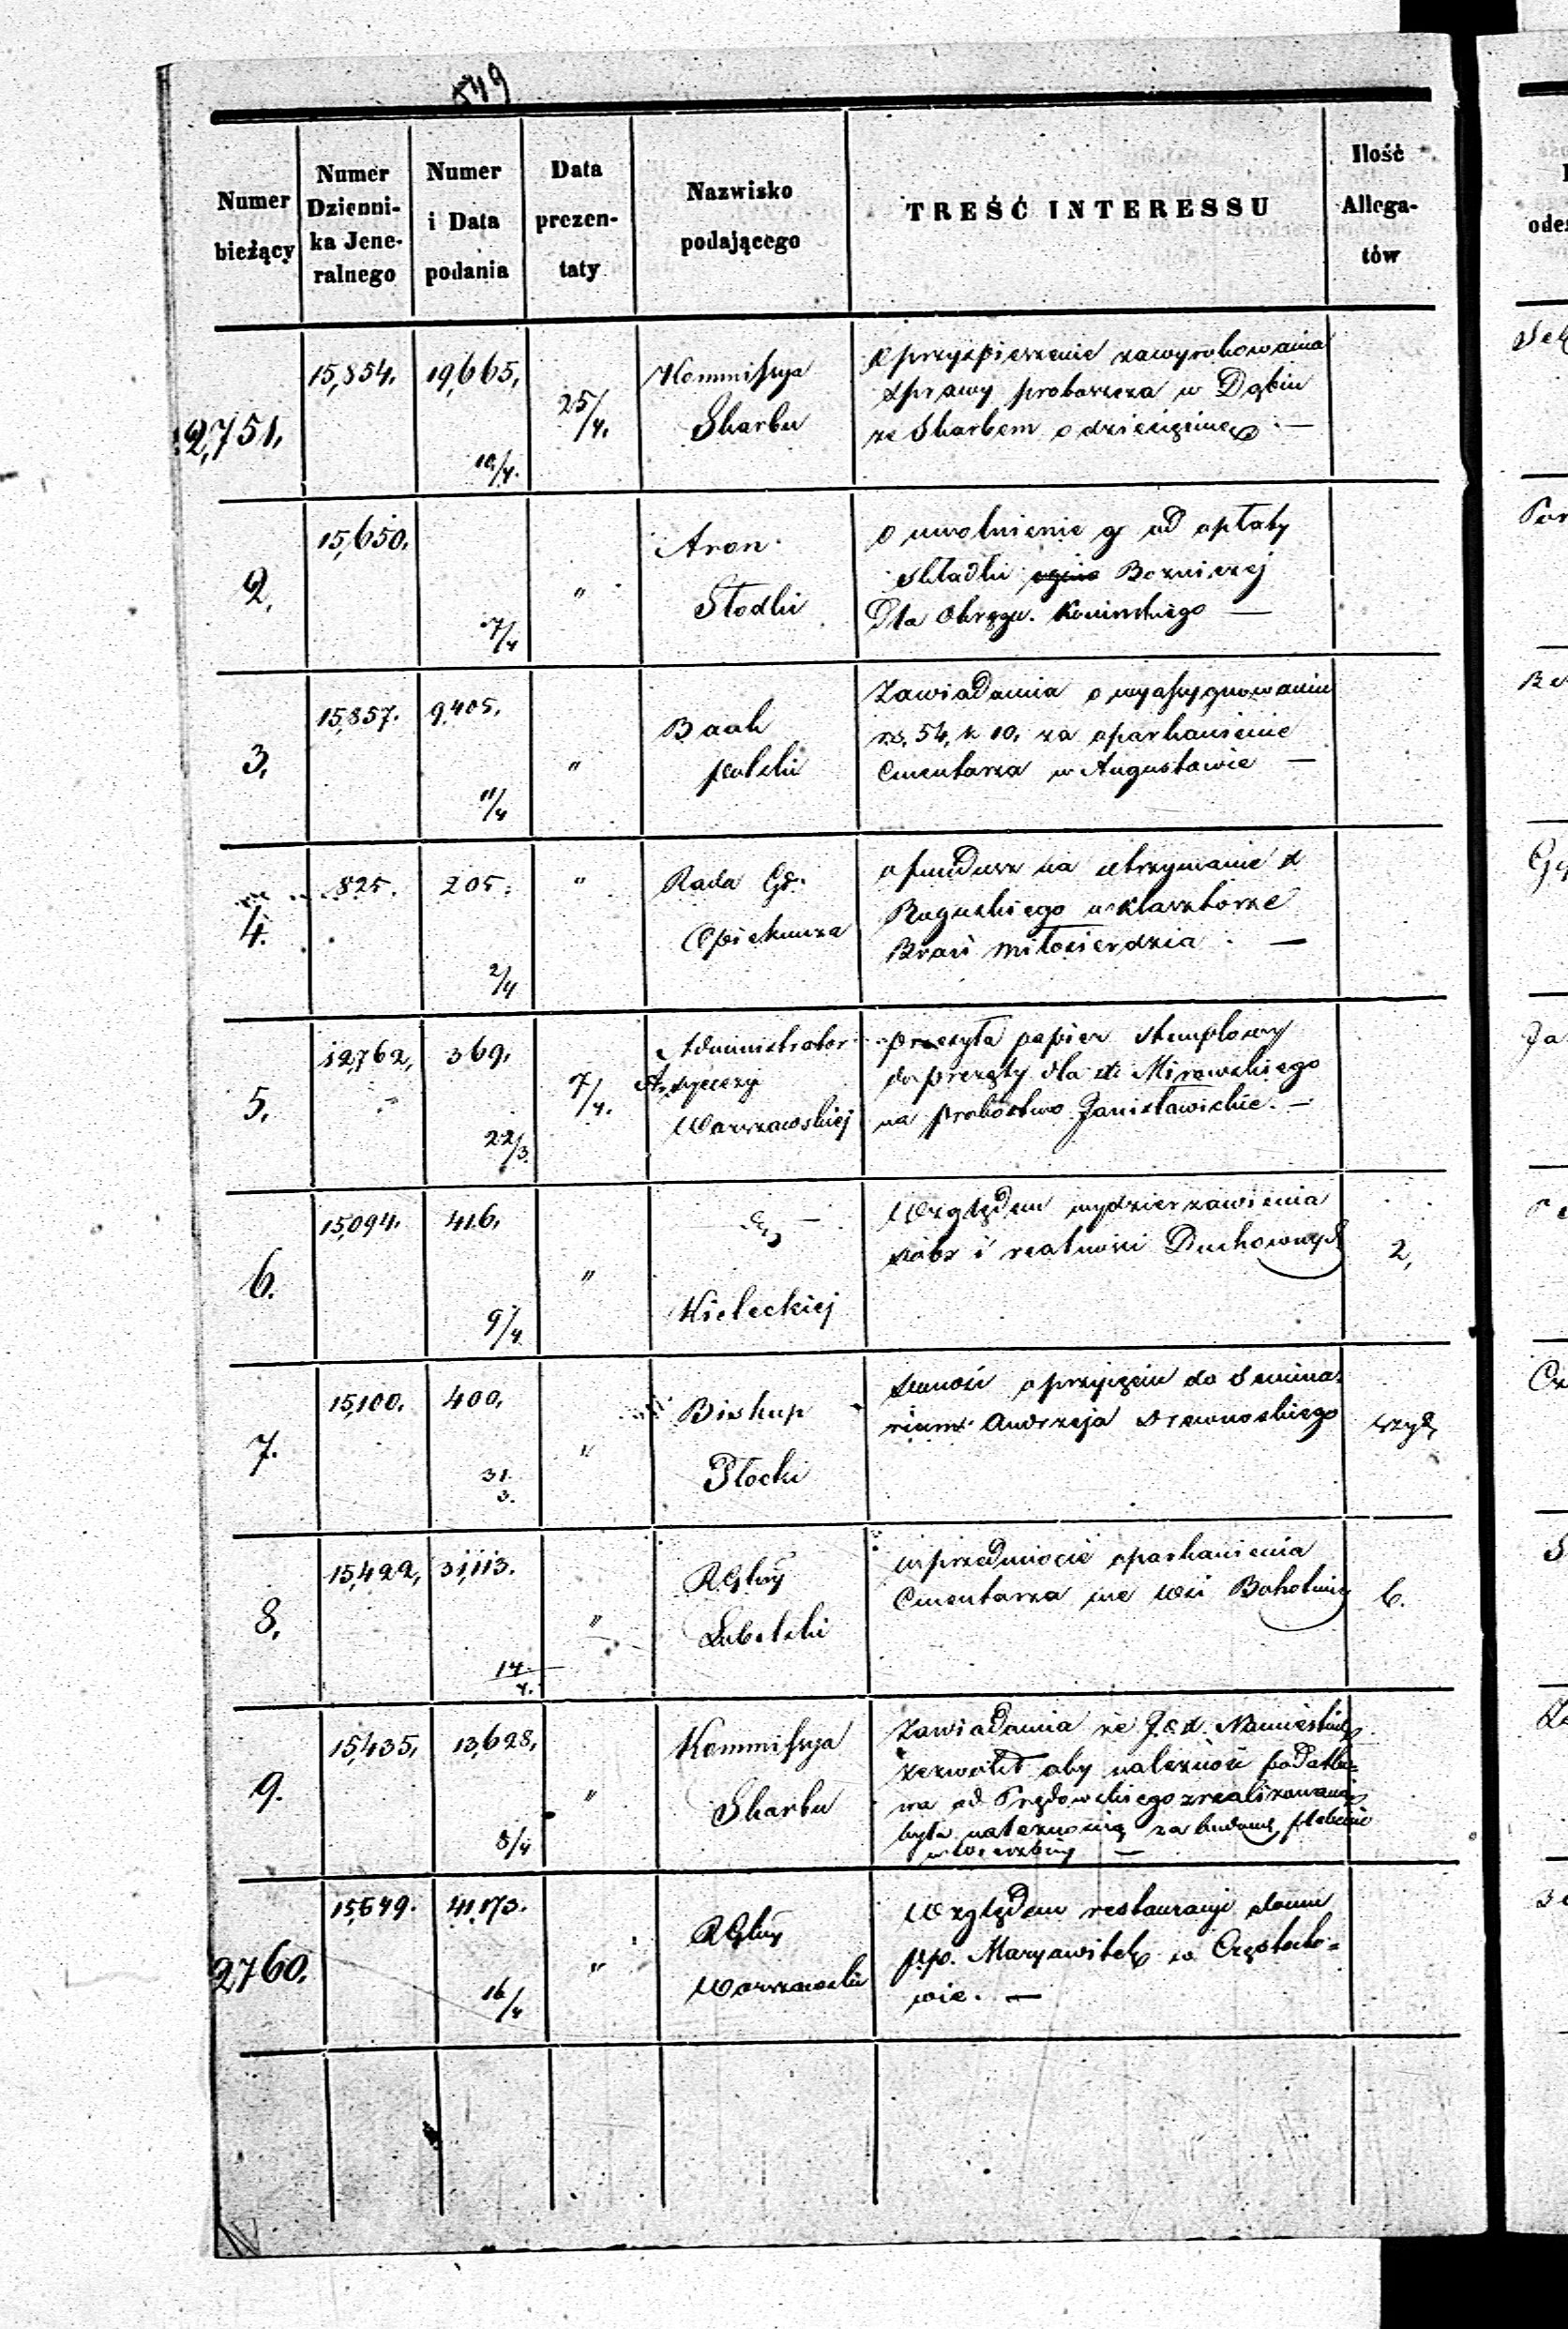 549
Numer bieżący
Numer Dzienni-
ka Jene-
ralnego
Numer i Data podania
Data prezen-
taty
Nazwisko podającego
TREŚĆ INTERESSU
Ilość Allega-
tów
2,751.
15,854.
19,665,
10/4.
25/4.
Kommissya
Skarbu
o przyspieszenie zawyrokowania
sprawy proboszcza w Dąbiu
ze Skarbem o dziesięcinę —
2.
15,650.
7/4
"
Aron
Słodki
o uwolnienie go od opłaty
składki Bozniczej
Dla Okręgu Konińskiego —
3.
15,857.
9,405.
11/4
"
Bank
polski
Zawiadamia o wyassygnowaniu
rs. 54, k 10. za oparkanienie
Cmentarza w Augustowie —
4.
825.
205.
2/4
"
Rada Gł.
Opiekuńcza
o fundusz na utrzymanie X
Roguskiego w klasztorze
Braci miłosierdzia —
5.
12,762,
369.
22/3.
7/4.
Administrator
Warszawskiej
przesyła papier stemplowy
do prezęty dla X Mirowskiego
na probostwo Janisławickie. —
6.
15,094.
416.
9/4
"
Kieleckiej
Względem wydzierżawienia
dóbr i realności Duchownych
2,
7.
15,100.
400.
31.
3.
"
Biskup
Płocki
o przyjęciu do Semina-
rium Andrzeja Drewnoskiego
8.
15,422,
31,113.
14
4.
"
RGlny
Lubelski
w przedmiocie oparkanienia
Cmentarza we Wsi Bochotnicy
6.
9.
15,435,
13,628,
8/4
"
Kommissya
Skarbu
Zawiadamia że J.O.X. Namiestnik
zezwolił aby należność podatko-
wa od Prędowskiego zrealizowaną
była należnością za budowę plebanii
w Wierzbicy —
2760.
15,649.
41,173.
16/4
"
RGlny
Warszawski
Względem restauracyi domu
p.p. Maryawitek w Częstocho-
wie. —